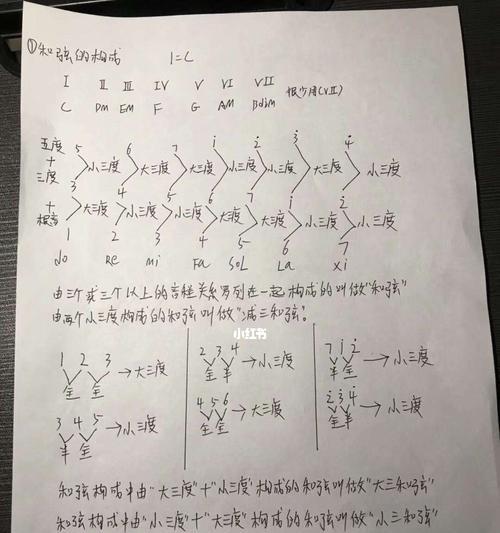 ①和弦的构成 1=C
I II III IV V VI VII 很少用(VII)
C Dm Em F G Am Bdim
五度 5 6 7 i 2 3 4
+ 小三度 大三度 大三度 小三度 小三度 大三度 小三度
三度 3 4 5 6 7 i 2
+ 大三度 小三度 小三度 大三度 大三度 小三度 小三度
根音 1 2 3 4 5 6 7
do Re mi Fa SoL La xi
由三个或三个以上的音程关系罗列在一起构成的叫做"和弦"
由两个小三度构成的和弦叫做"减三和弦"。
小红书
1 2 3 →大三度
全 全
3 4 5 →小三度
半 全
2 3 4 →小三度
全 半
4 5 6 →大三度
全 全
7 i 2 →小三度
半 全
2 3 4 →小三度
全 半
和弦构成中由"大三度"+"小三度"构成的和弦叫做"大三和弦"
和弦构成中由"小三度"+"大三度"构成的和弦叫做"小三和弦"